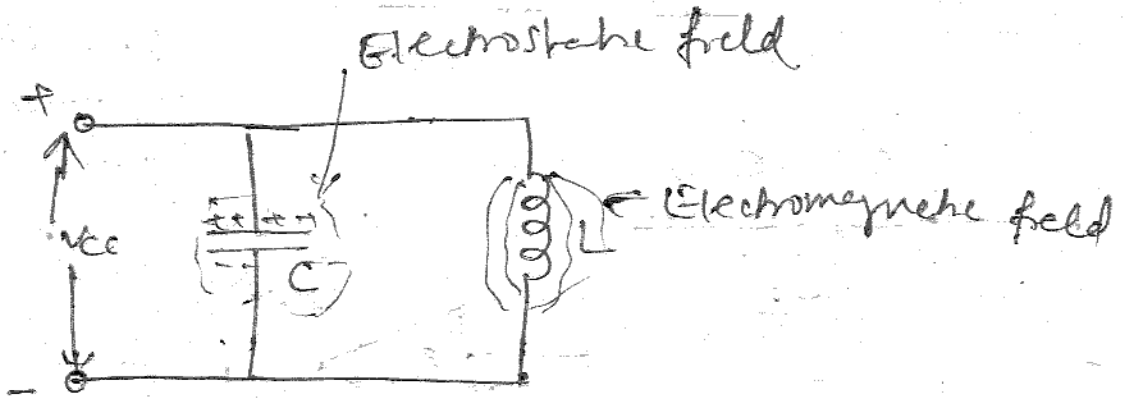 Electrostatic field
+
++ ++
Vcc
- - -
C
L
Electromagnetic field
-